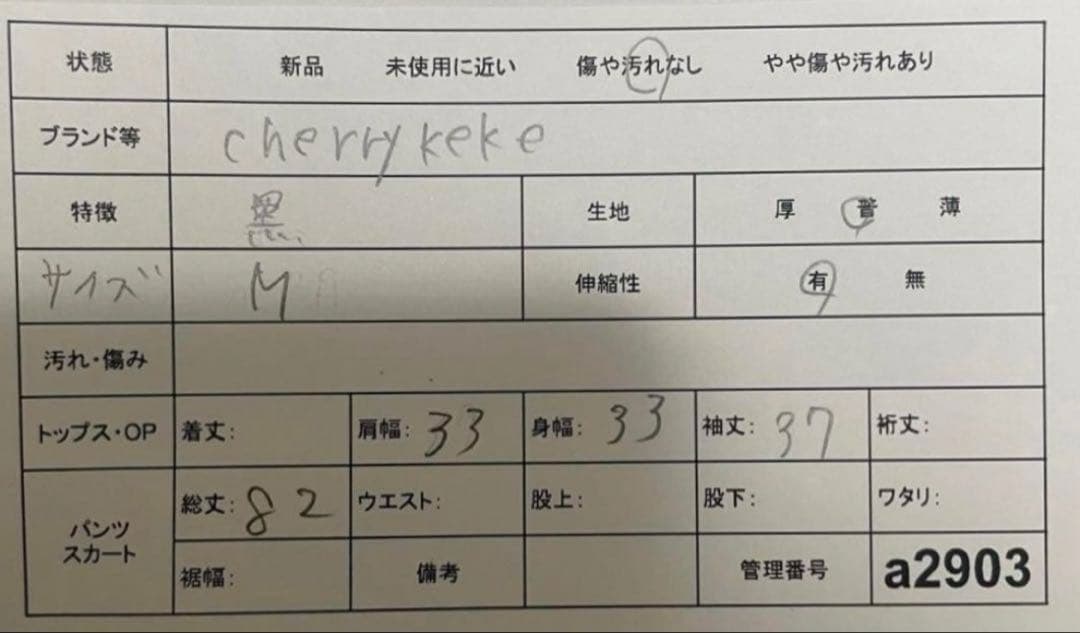 状態 新品 未使用に近い 傷や汚れなし やや傷や汚れあり
ブランド等 cherry keke
特徴 黒 生地 厚 普 薄
サイズ M 伸縮性 有 無
汚れ・傷み
トップス・OP 着丈: 肩幅: 33 身幅: 33 袖丈: 37 裄丈:
パンツ
スカート
総丈: 82 ウエスト: 股上: 股下: ワタリ:
裾幅: 備考 管理番号 a2903